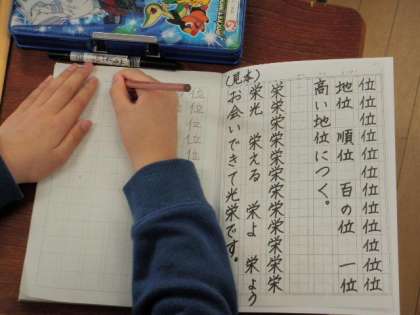 位位位位位位位位位位位位位
地位 順位 百の位 一位
高い地位につく。
栄栄栄栄栄栄栄栄栄栄栄栄栄
栄光 栄える 栄よ 栄よう
(見本)
お会いできて光栄です。
位位位位位